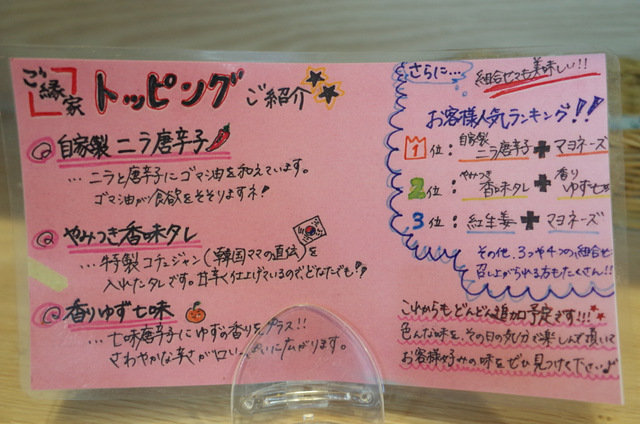 ご縁家 トッピング ご紹介
自家製 ニラ唐辛子
…ニラと唐辛子にゴマ油を和えています。
ゴマ油が食欲をそそりますネ!
やみつき香味タレ
…特製コチュジャン(韓国ママの直伝)を
入れたタレです。甘辛く仕上げているので、どなたでも!!
香りゆず七味
…七味唐辛子にゆずの香りをプラス!!
さわやかな辛さが口いっぱいに広がります。
さらに… 組合せても美味しい!!
お客様人気ランキング!!
1位:自家製ニラ唐辛子+マヨネーズ
2位:やみつき香味タレ+香りゆず七味
3位:紅生姜+マヨネーズ
その他、3つや4つの組合せで
召し上がられる方もたくさん!!
これからもどんどん追加予定です!!!
色んな味を、その日の気分で楽しんで頂いて
お客様好みの味をぜひ見つけて下さい♪